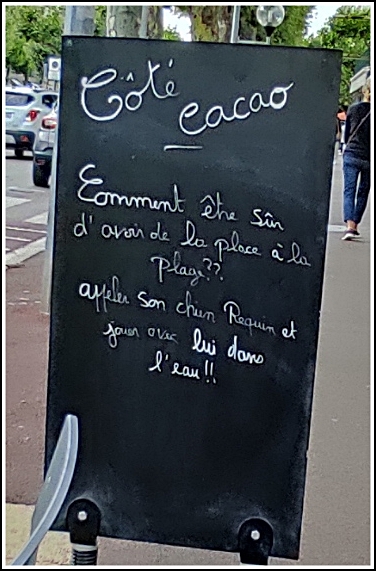 Côté
cacao
Comment être sûr
d'avoir de la place à la
plage??
appeler son chien Requin et
jouer avec lui dans
l'eau!!